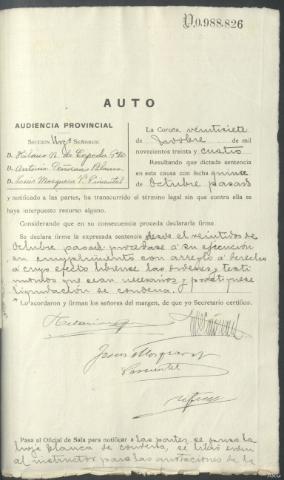 D.0.988.826
AUTO
AUDIENCIA PROVINCIAL
SECCIÓN Unica SEÑORES
D. Hilario N. de Cepeda
D. Antonio Terreiro Blanco
D. Jesús Mosquera V. Pimentel
La Coruña, veintisiete
de de mil
novecientos treinta y cuatro
Resultando que dictada sentencia
en esta causa con fecha quince
de Octubre pasado
y notificado a las partes, ha transcurrido el término legal sin que contra ella se
haya interpuesto recurso alguno.
Considerando que en su consecuencia procede declararla firme
Se declara firme la expresada sentencia desde el veintidos de
Octubre pasado procedase a su ejecución
en cumplimiento con arreglo a derecho
a cuyo efecto líbrense las órdenes y testi
monios que sean necesarios y practíquese
liquidación de condena.
Lo acordaron y firman los señores del margen, de que yo Secretario certifico.
Jesús Mosquera V.
Pimentel
Pasa al Oficial de Sala para notificar a las partes, se
hoja blanca de condena, se libró orden
al instructor para las anotaciones de la